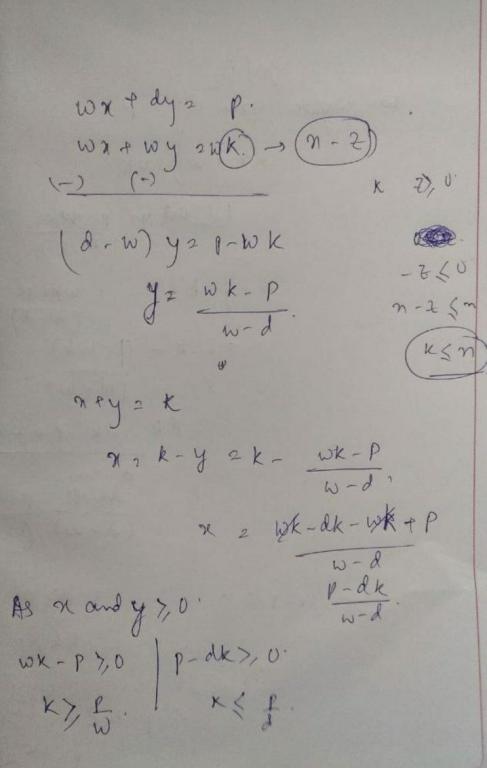 wx + dy = p.
wx + wy = wk. → n - z
(-) (-)
k z ≥ 0
(d - w) y = p - wk
-z ≤ 0
y = wk - p / w - d.
n - z ≤ n
k ≤ n
x + y = k
x = k - y = k - wk - p / w - d,
x = wk - dk - wk + p / w - d
p - dk / w - d.
As x and y ≥ 0.
wk - p ≥ 0 | p - dk ≥ 0.
k ≥ p / w. k ≤ p / d.